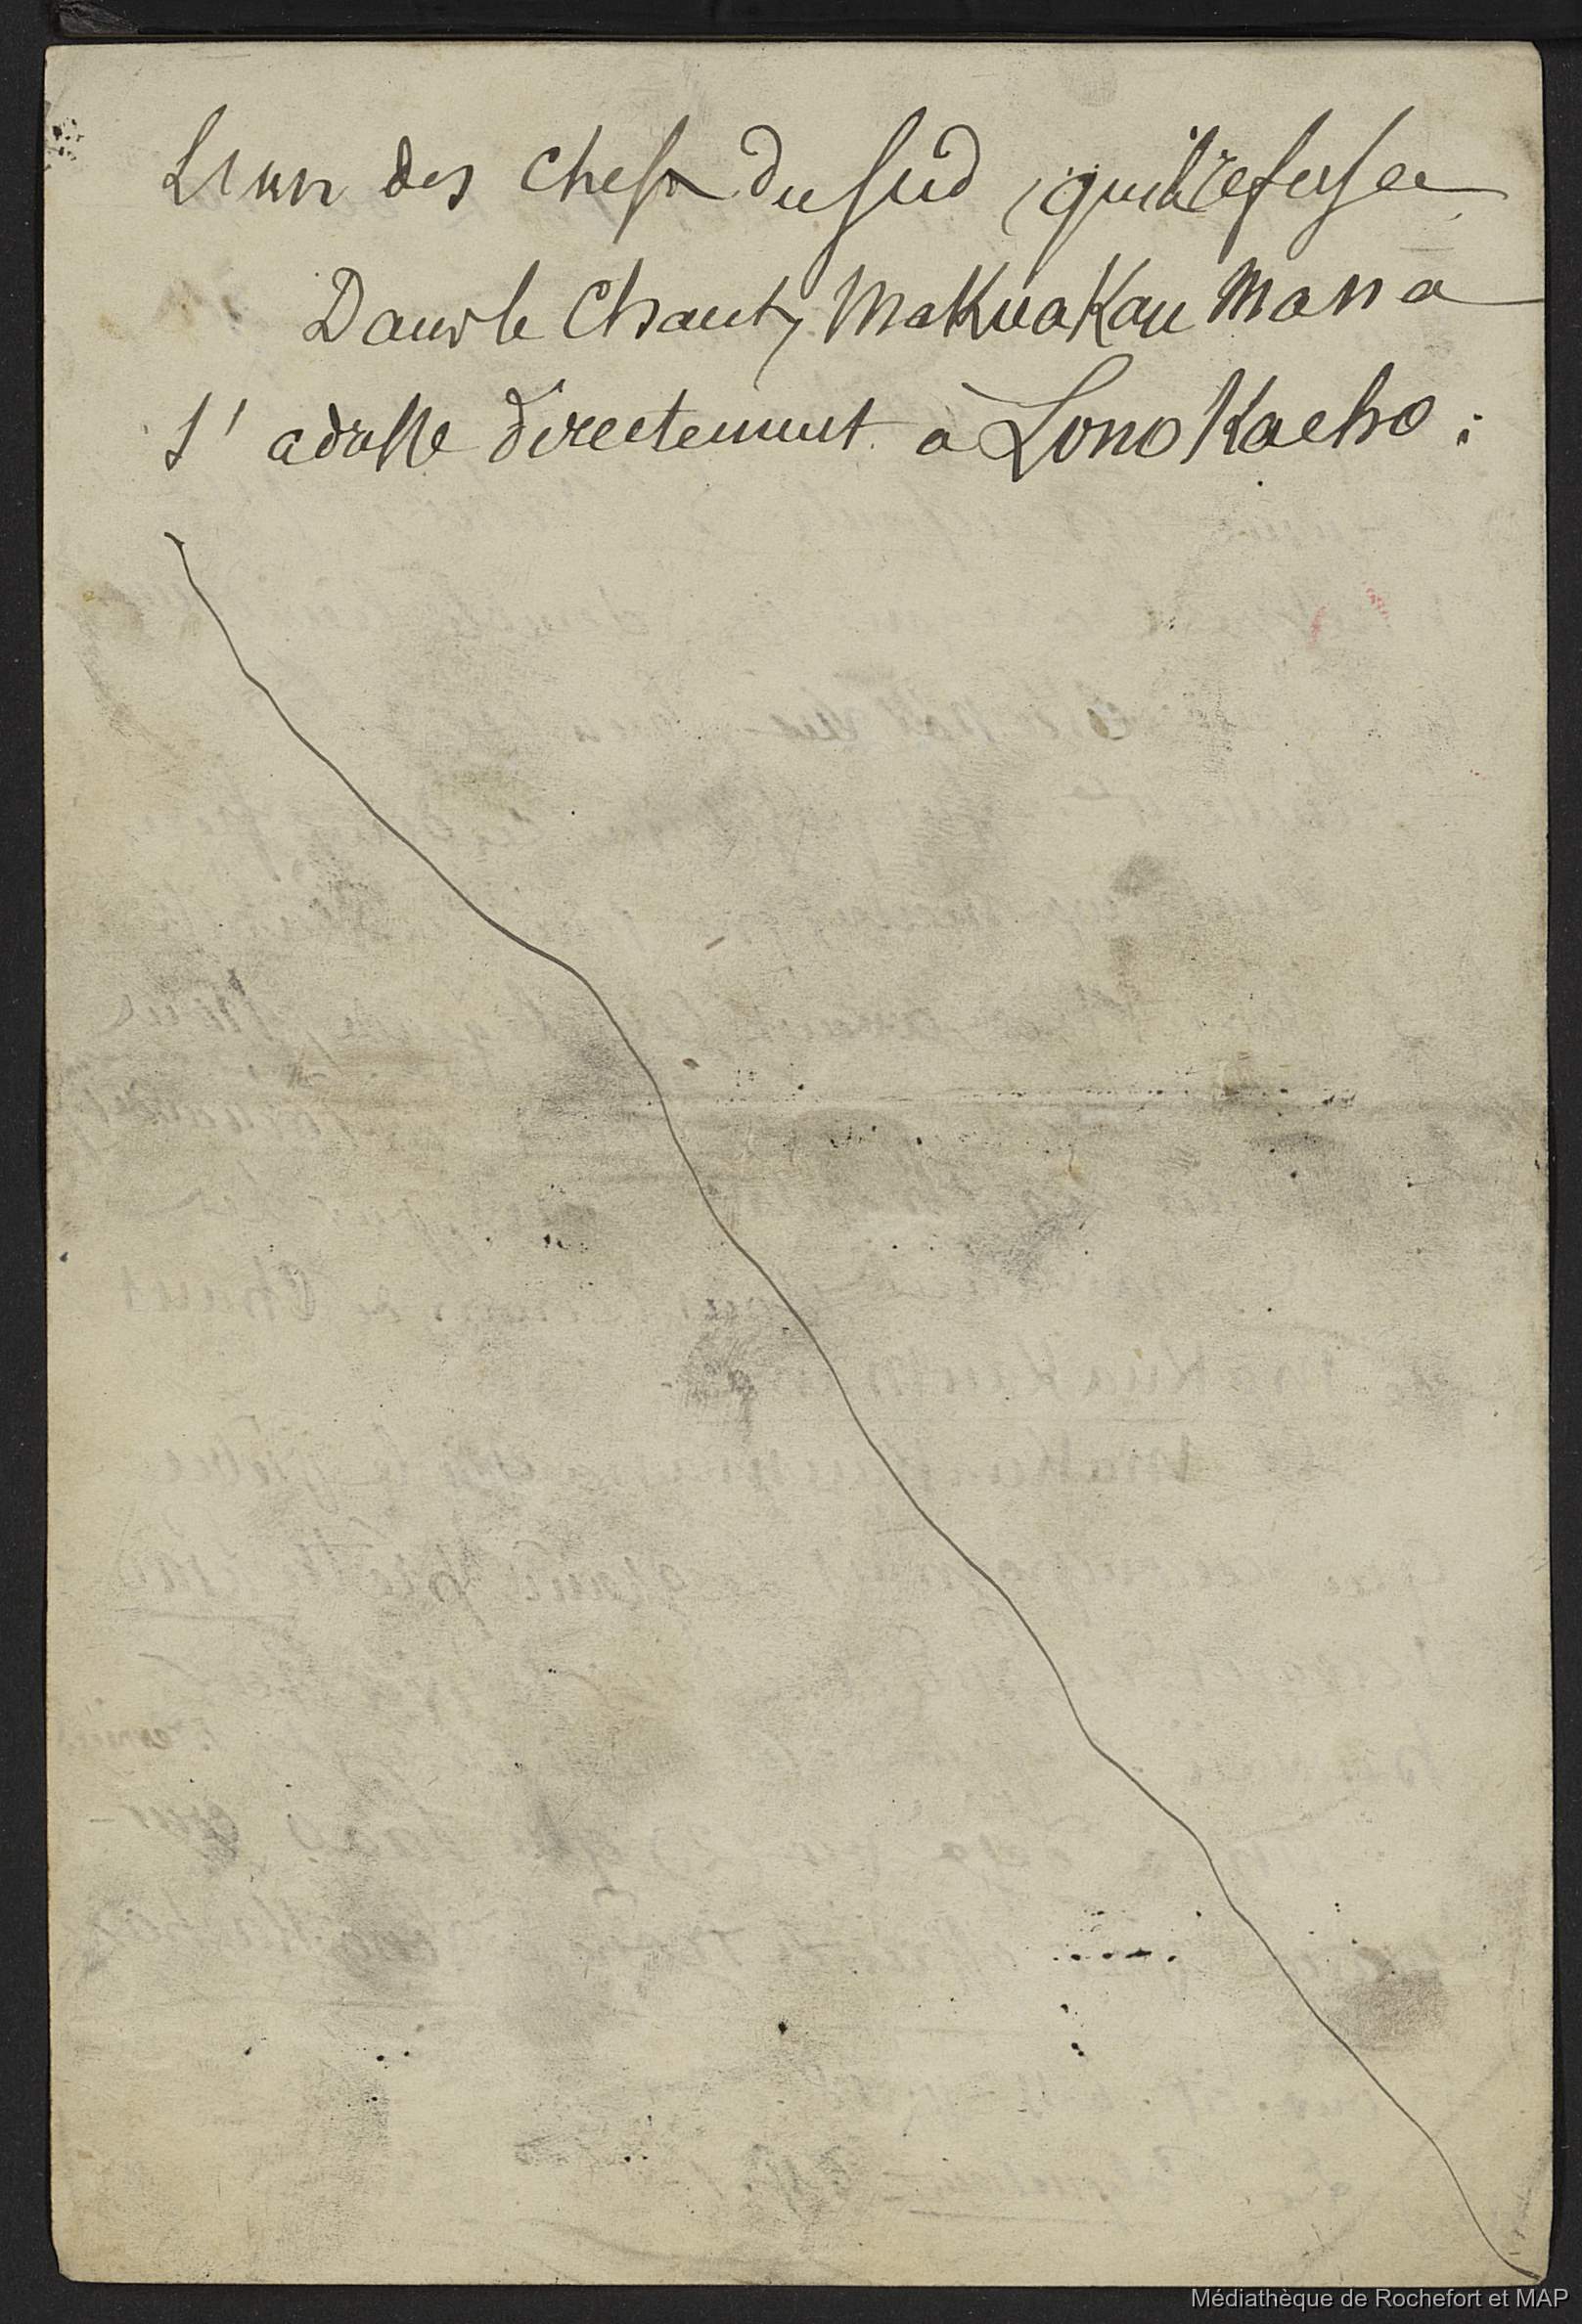 L'un des chefs du sud, qu'il refusa
Dans le Chant, MaKuaKau Mana
s'adresse directement à LonoKaeho :
Médiathèque de Rochefort et MAP